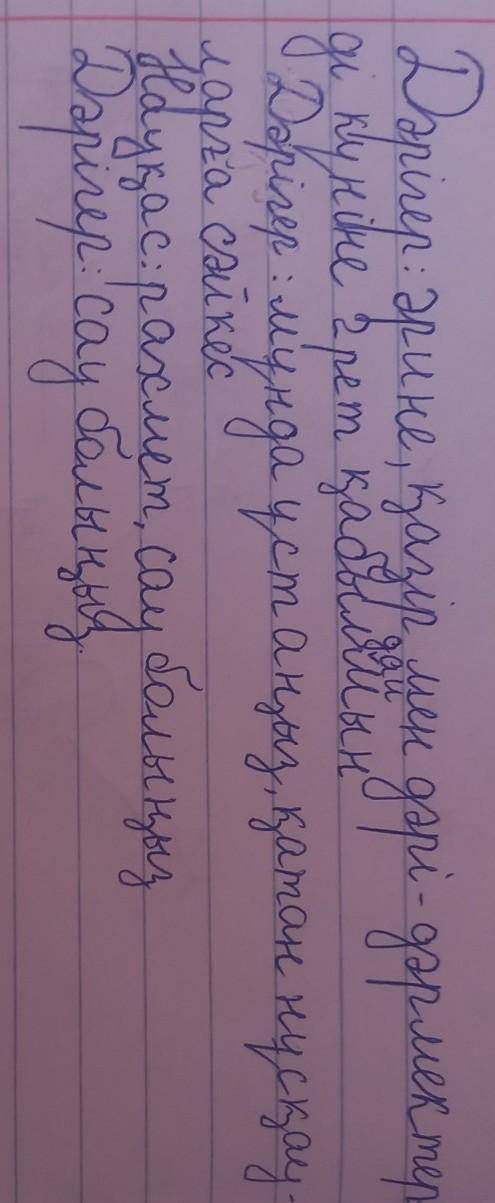 Дәрігер: әрине, қазір мен дәрі-дәрмектер
ді күніне 2 рет қабылдаймын
Дәрігер: мұнда ұстаңыз, қатан нұсқау-
ларға сәйкес
Науқас: рахмет, сау болыңыз
Дәрігер: сау болыңыз.